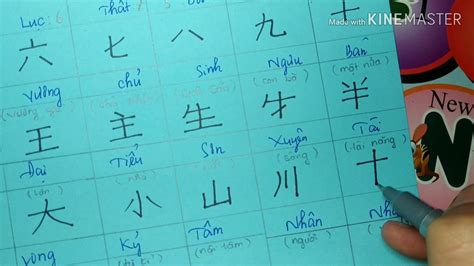 MADE WITH KINEMASTER
Lục: 6 Thất
六 七 八 九 十
Vương chủ Sinh Ngưu Bán
(con bò) (một nửa)
王 主 生 牛 半
Đại Tiểu Sơn Xuyên Tài
(lớn) (nhỏ) (sông) (tài năng)
大 小 山 川 十
Vong Kỷ Tâm Nhân
(nội tâm) (người)
New
N